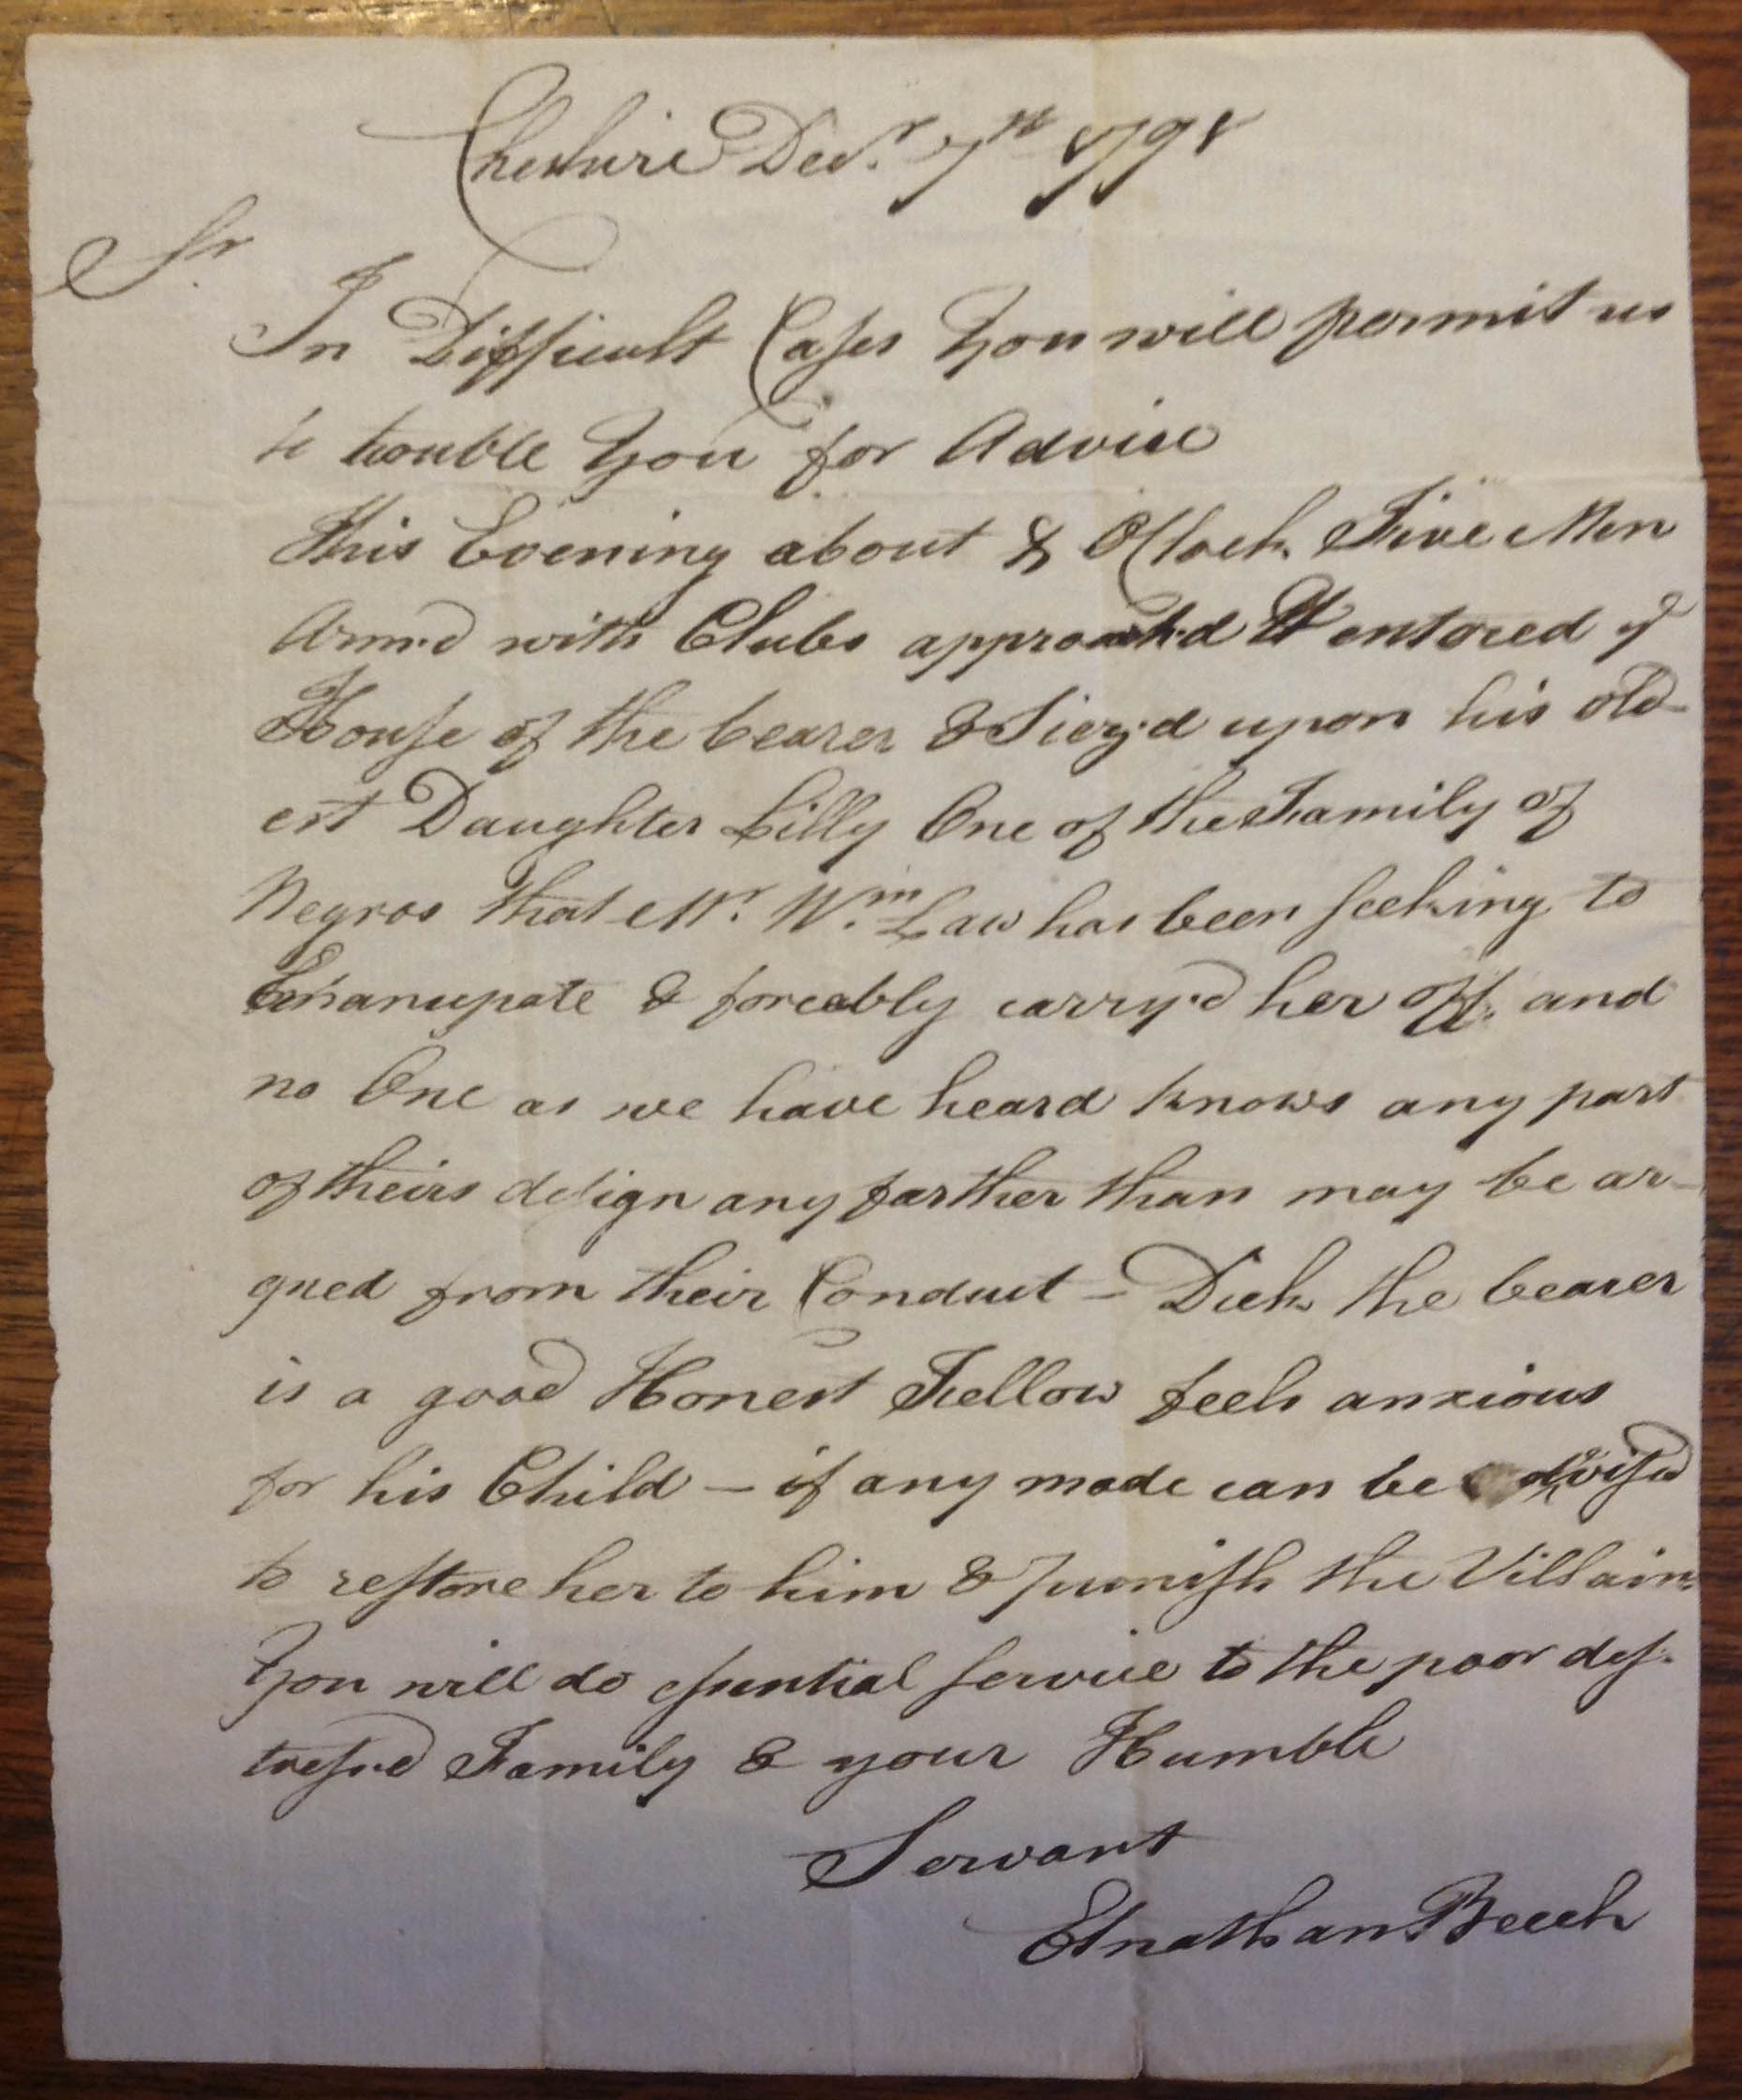 Cheshire Decr. 7th 1791
Sr.
In Difficult Cases You will permit us
to trouble You for Advice
This Evening about 8 OClock Five Men
Arm'd with Clubs approach'd & entered ye
House of the bearer & Siez'd upon his old-
est Daughter Lilly One of the Family of
Negros that Mr. Wm. Law has been seeking to
Emancipate & forceably carry'd her off. and
no One as we have heard knows any part
of theirs design any farther than may be ar-
gued from their Conduct - Dick the bearer
is a good Honest Fellow feels anxious
for his Child - if any mode can be devised
to restore her to him & punish the Villains
You will do essential service to the poor des-
tress'd Family & your Humble
Servant
Elnathan Beech